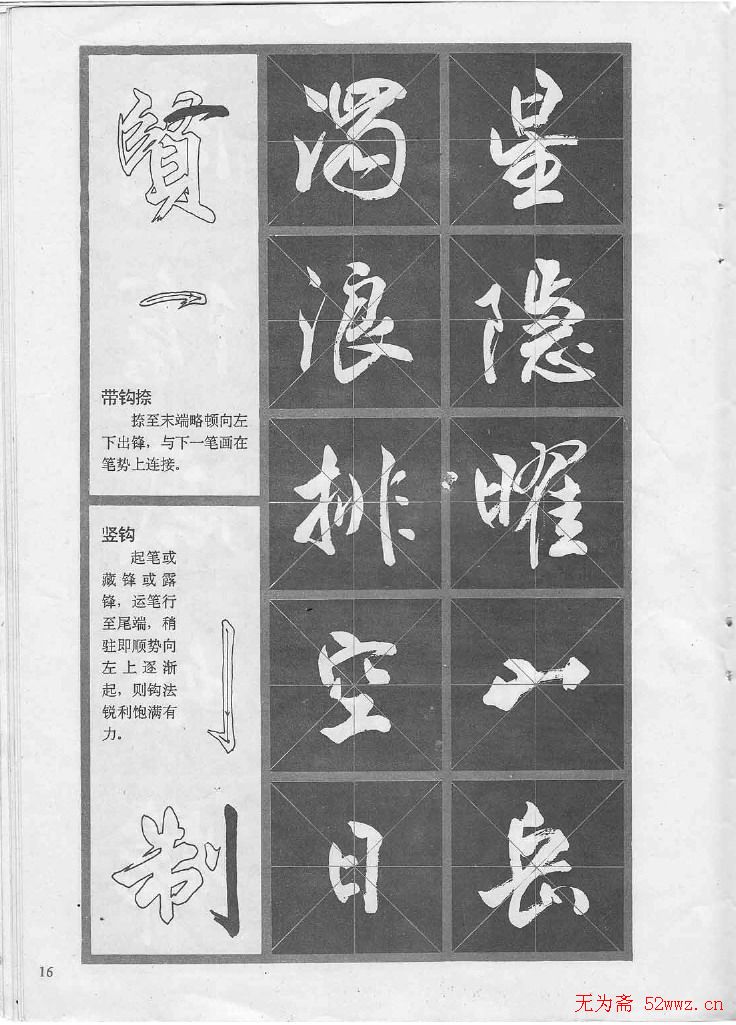 賢
带钩捺
捺至末端略顿向左
下出锋，与下一笔画在
笔势上连接。
竖钩
起笔或
藏锋或露
锋，运笔行
至尾端，稍
驻即顺势向
左上逐渐
起，则钩法
锐利饱满有
力。
制
濁浪排空日
星隐曜山岳
16
无为斋 52wwz.cn